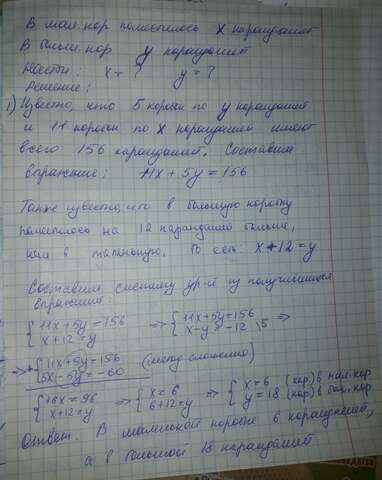 В мал. кор поместилось x карандашей
В больш. кор y карандашей
Найти: x = ? y = ?
Решение:
1) Известно, что 5 коробок по y карандашей
и 11 коробок по x карандашей имеют
всего 156 карандашей. Составим
выражение: 11x + 5y = 156
Также известно, что в большую коробку
поместилось на 12 карандашей больше,
чем в маленькую. То есть: x + 12 = y
Составим систему ур-й из получившихся
выражений
{ 11x + 5y = 156
x + 12 = y => { 11x + 5y = 156
x - y = -12 \5 =>
=> + { 11x + 5y = 156
5x - 5y = -60 (метод сложения)
{ 16x = 96
x + 12 = y => { x = 6
6 + 12 = y => { x = 6 (кар) в мал. кор
y = 18 (кар) в бол. кор
Ответ: В маленькой коробке 6 карандашей,
а в большой 18 карандашей